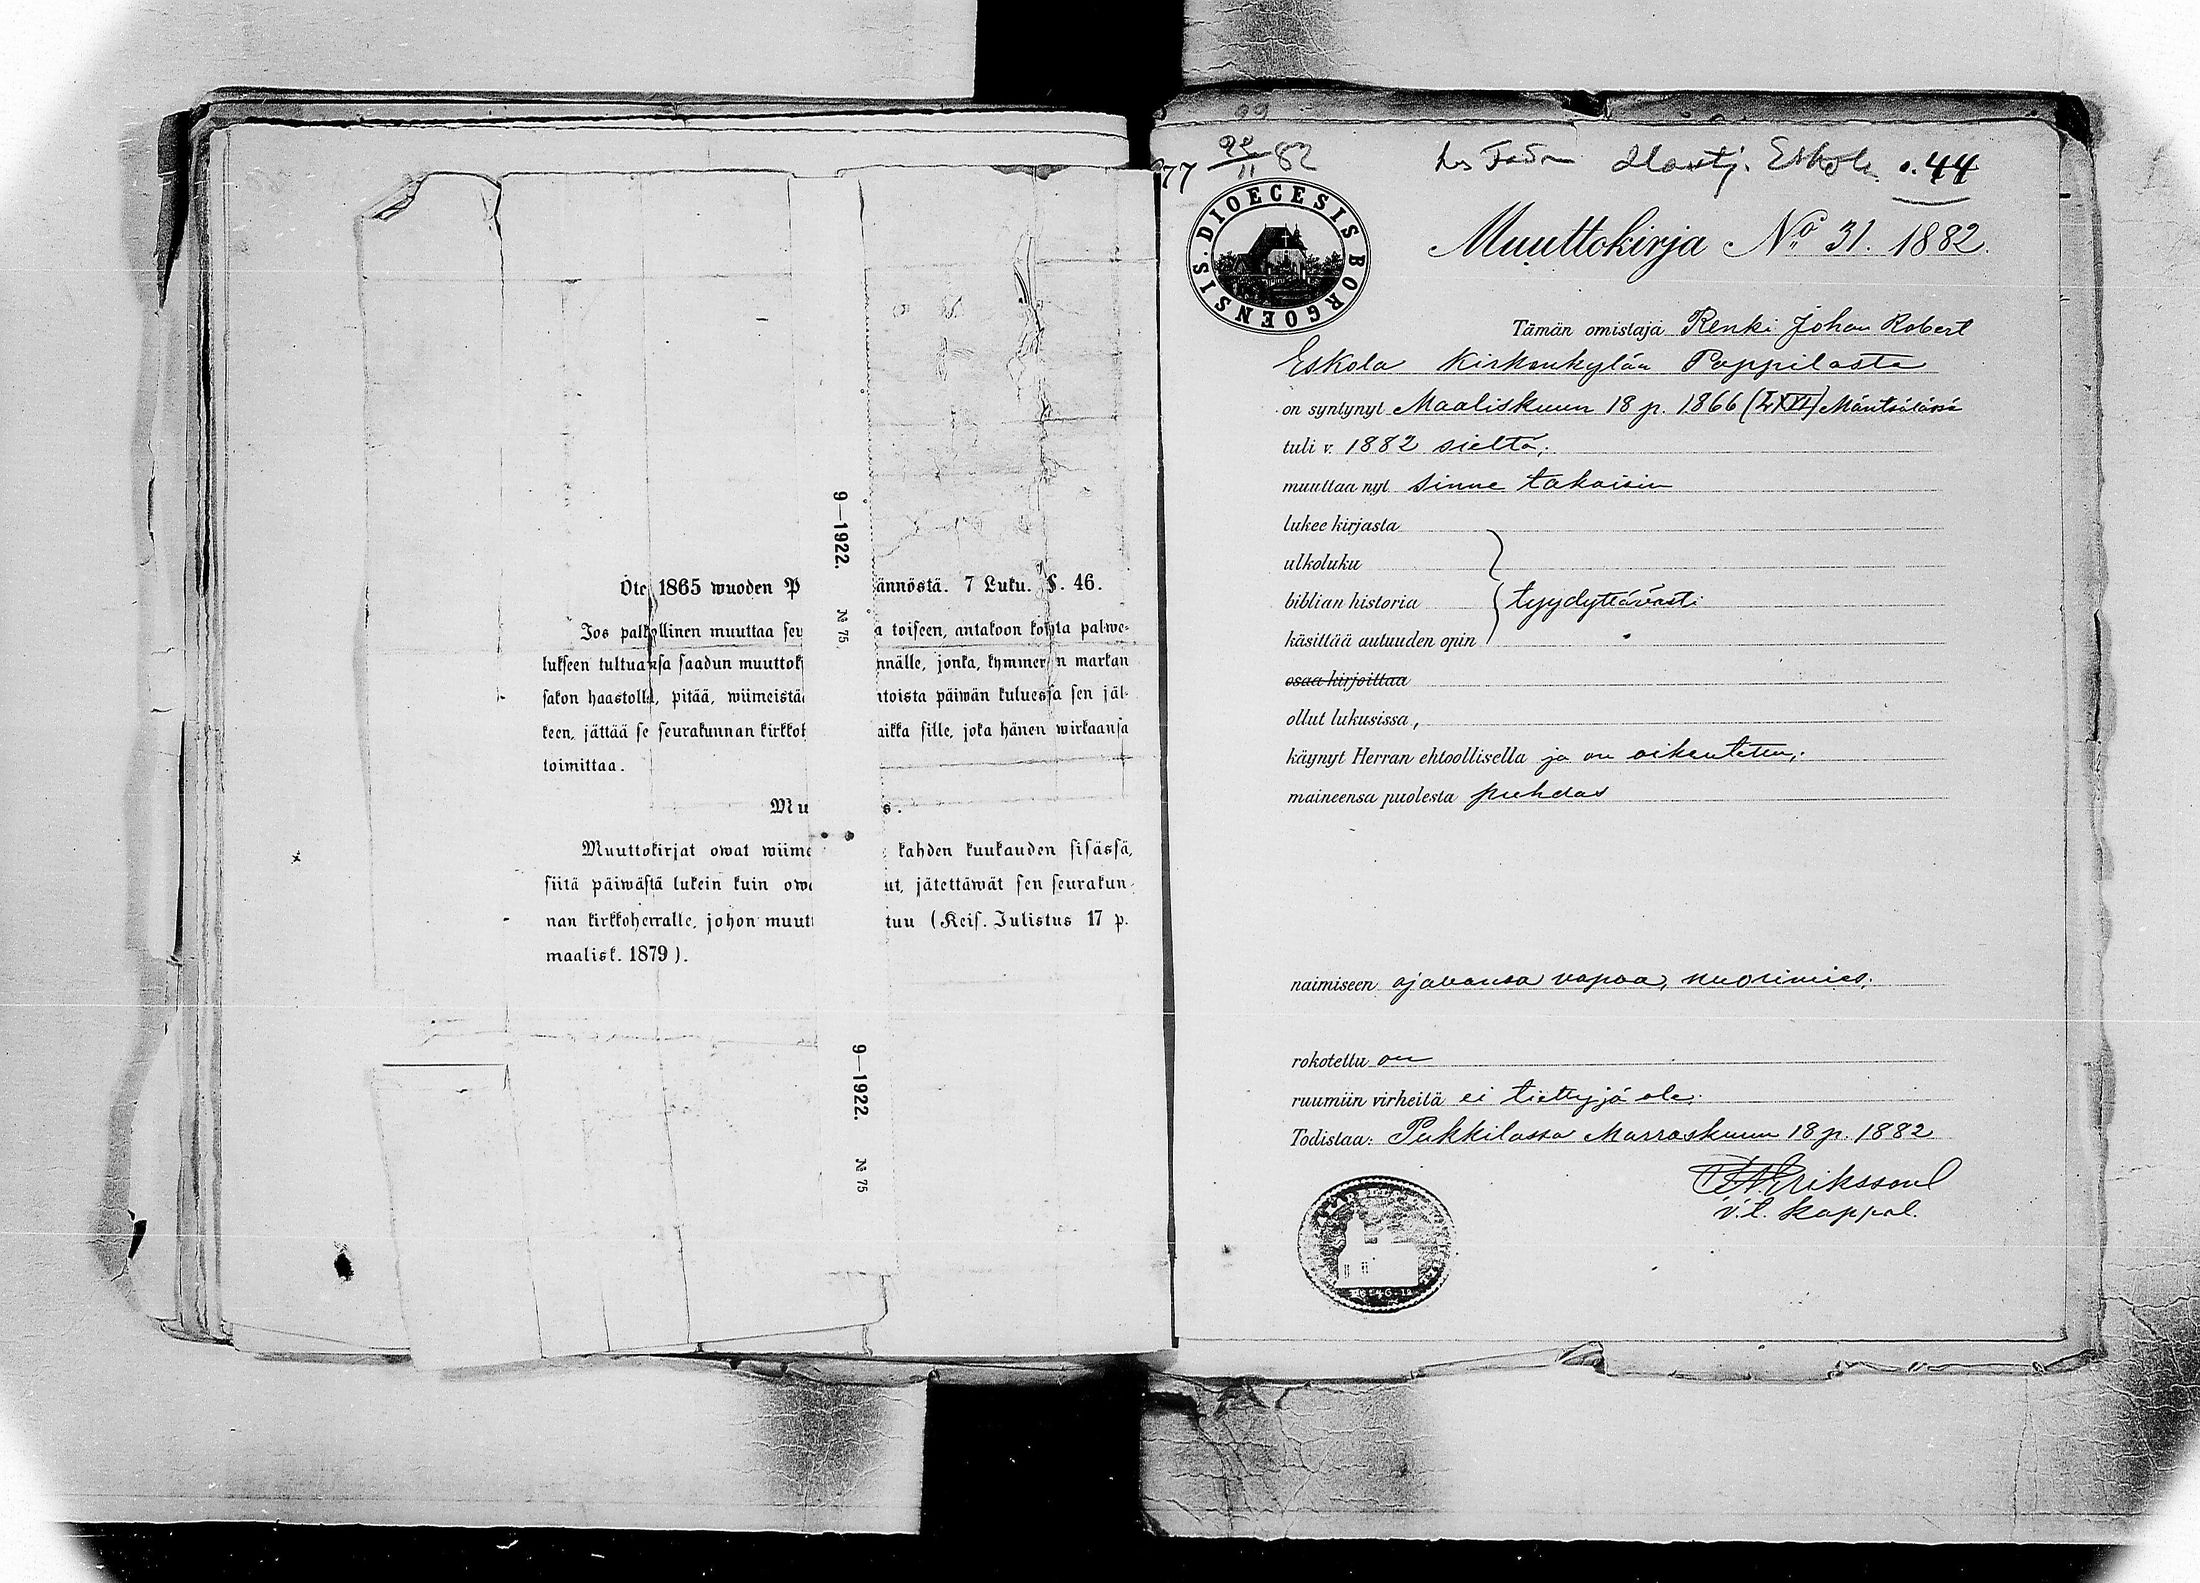 Ote 1865 wuoden P ännöstä. 7 Luku. §. 46.
Jos palkollinen muuttaa seu a toiseen, antakoon kohta palwe-
lukseen tultuansa saadun muuttok nnälle, jonka, kymmenen markan
sakon haastolla, pitää, wiimeistä ntoista päiwän kuluessa sen jäl-
keen, jättää se seurakunnan kirkkoh aikka sille, joka hänen wirkaansa
toimittaa.
Mu s.
Muuttokirjat owat wiime kahden kuukauden sisässä,
siitä päiwästä lukein kuin owa ut, jätettäwät sen seurakun-
nan kirkkoherralle, johon muut tuu (Keis. Julistus 17 p.
maalisk. 1879).
9—1922. № 75.
9—1922. № 75
77 82
Eskola 44
DIOECESIS BORGOENSIS.
Muuttokirja No 31. 1882.
Tämän omistaja Renki Johan Robert
Eskola Kirkonkylän Pappilasta
on syntynyt Maaliskuun 18 p. 1866 (LXVI) Mäntsälässä
tuli v. 1882 sieltä;
muuttaa nyt sinne takaisin
lukee kirjasta
ulkoluku
biblian historia tyydyttävästi
käsittää autuuden opin
osaa kirjoittaa
ollut lukusissa,
käynyt Herran ehtoollisella ja on oikeutettu;
maineensa puolesta puhdas
naimiseen ajavansa vapaa, nuorimies;
rokotettu on
ruumiin virheitä ei tiettyjä ole;
Todistaa: Pukkilassa Marraskuun 18 p. 1882
Erikssonl
v.t. kappal.